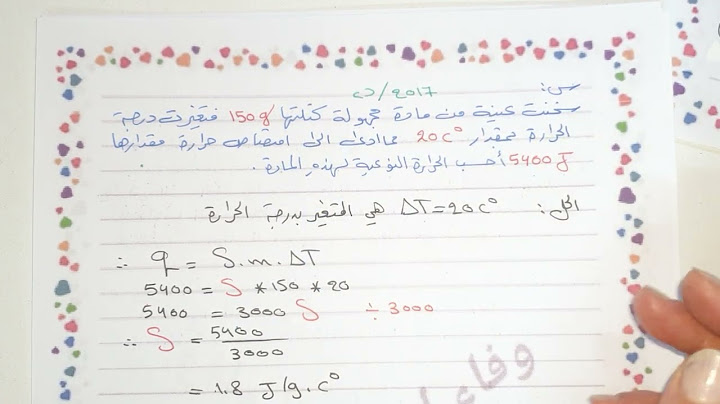 س: 2017/د
سخنت عينة من مادة مجهولة كتلتها 150g فتغيرت درجة
الحرارة بمقدار 20C° مما ادى الى امتصاص حرارة مقدارها
5400J أحسب الحرارة النوعية لهذه المادة.
الحل: ΔT=20C° هي المتغير بدرجة الحرارة
∴ q = S.m.ΔT
5400 = S *150 * 20
5400 = 3000 S ÷ 3000
∴ S = 5400/3000
= 1.8 J/g.C°
وفاء